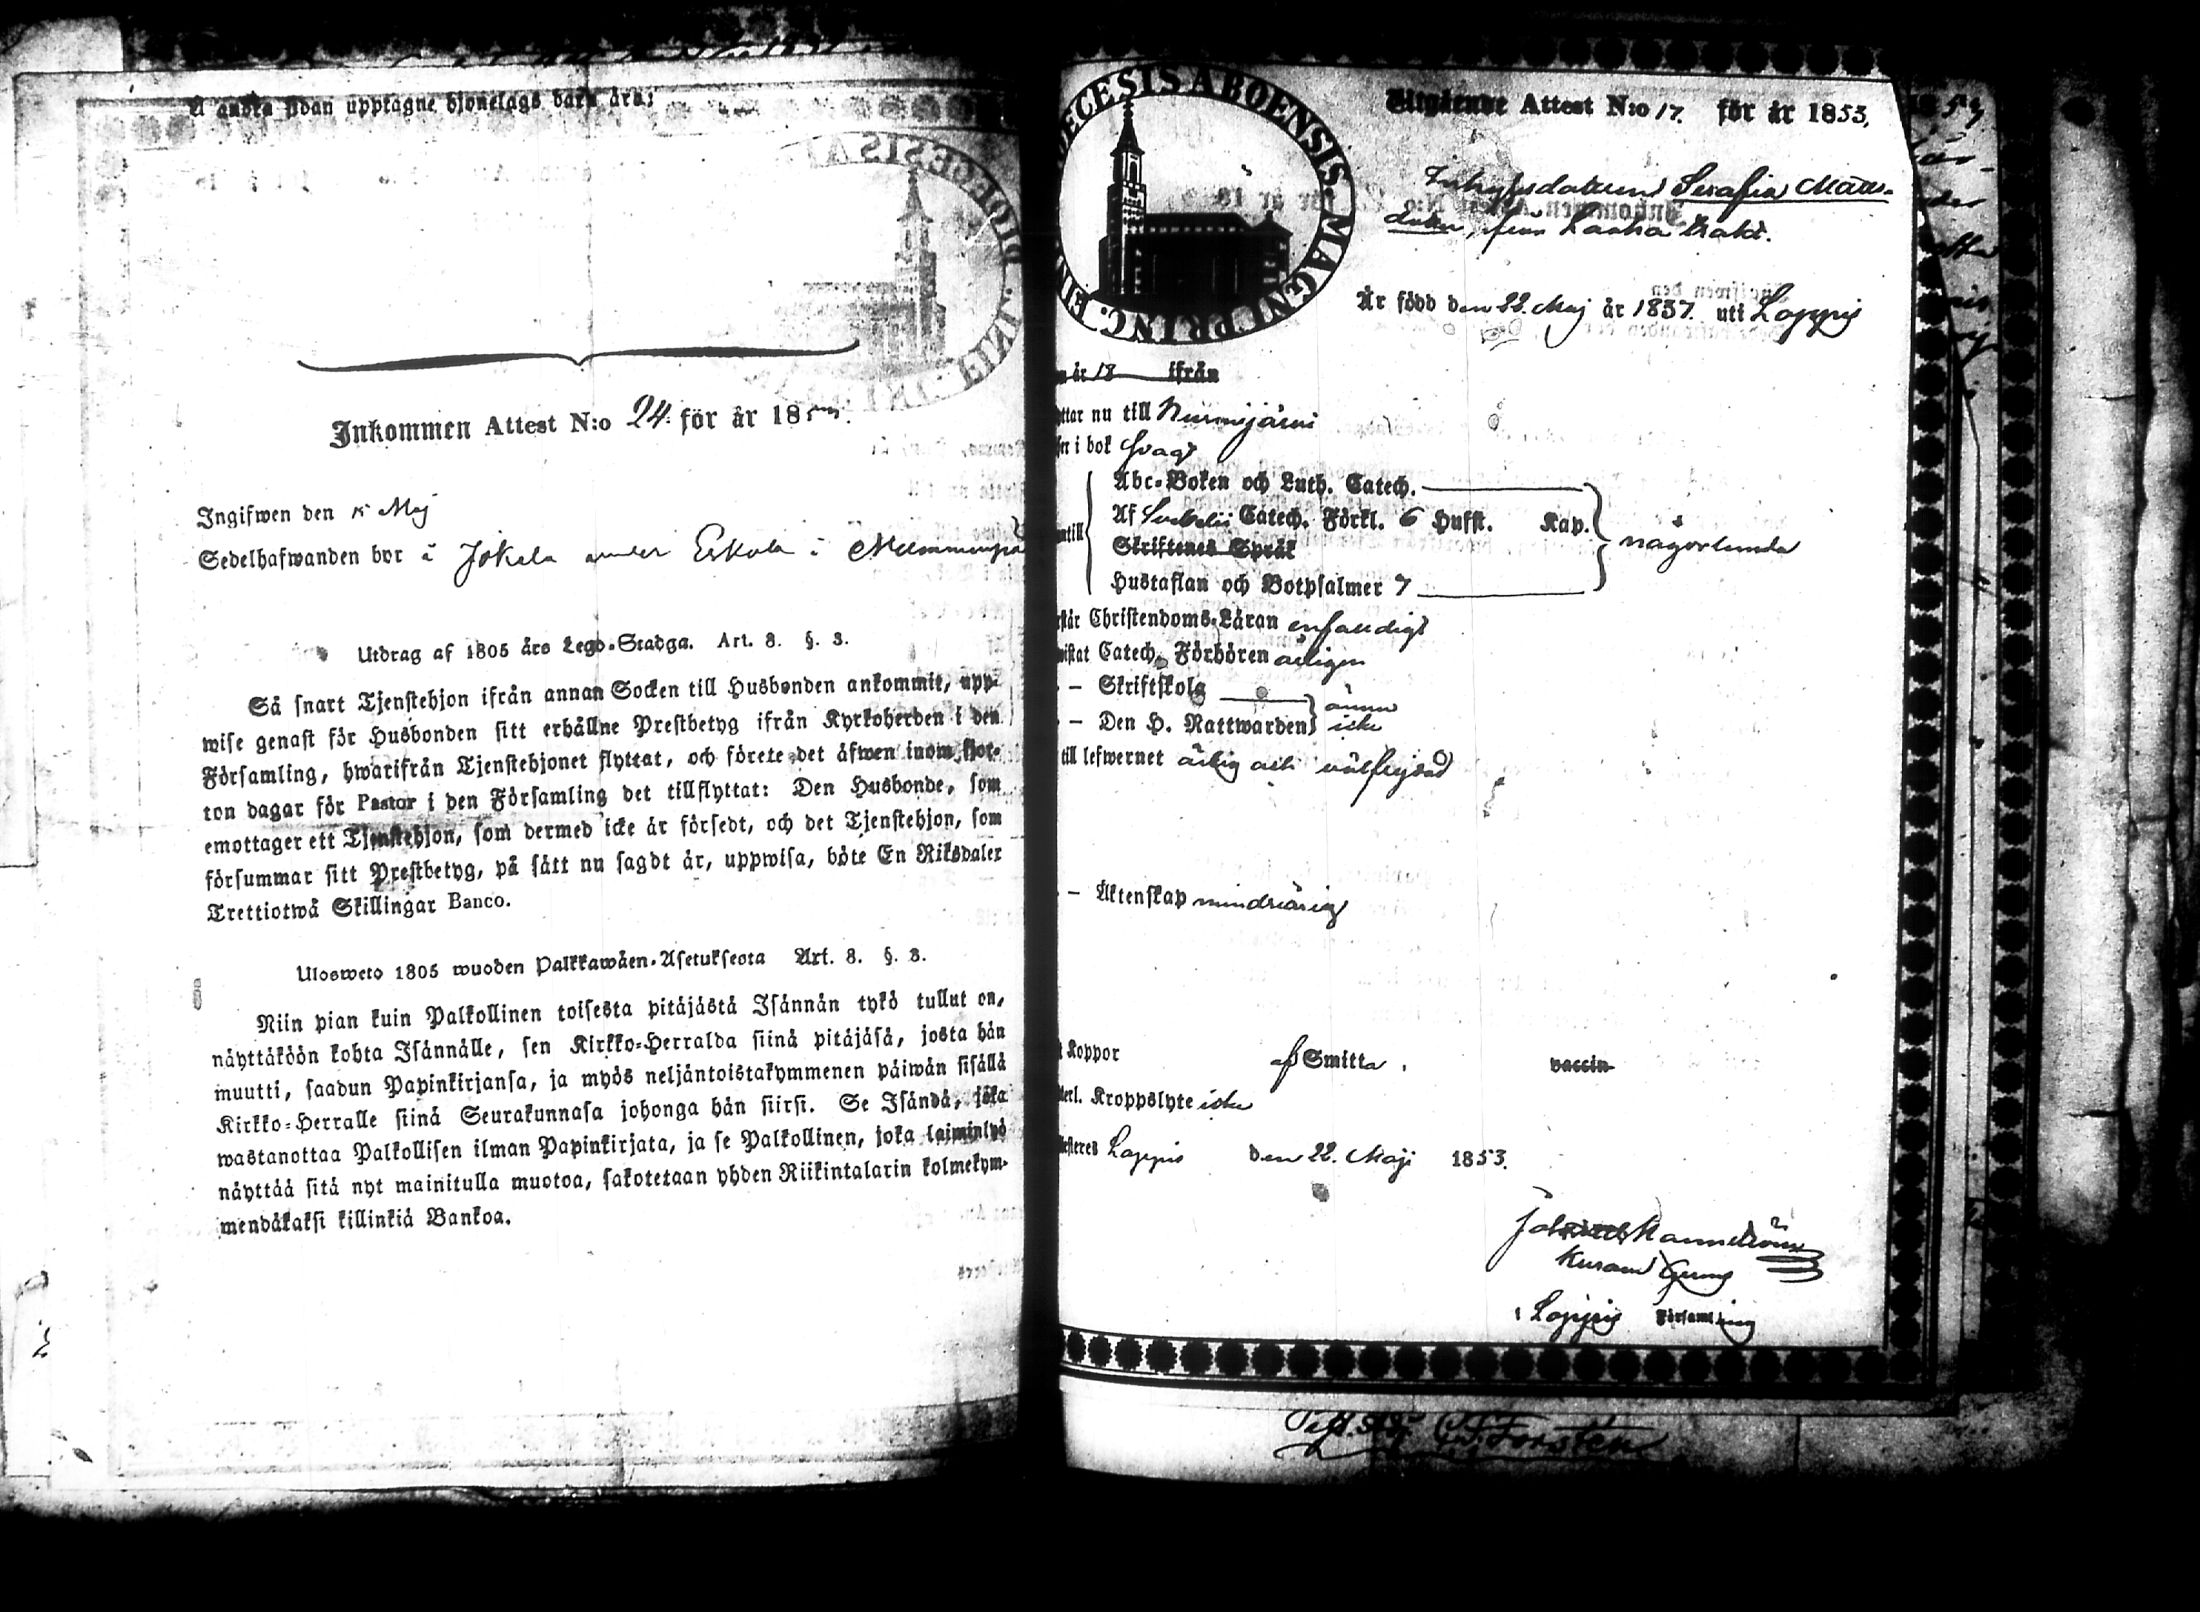 Å andra sidan upptagne hjonelags barn äro:
Inkommen Attest N:o 24 för år 1853.
Ingifwen den Maj
Sedelhafwanden bor å Jokela under Eskola i
Utdrag af 1805 års Lego-Stadga. Art. 8. §. 3.
Så snart Tjenstehjon ifrån annan Socken till Husbonden ankommit, upp-
wise genast för Husbonden sitt erhållne Prestbetyg ifrån Kyrkoherden i den
Församling, hwarifrån Tjenstehjonet flyttat, och förete det äfwen inom fjor-
ton dagar för Pastor i den Församling det tillflyttat: Den Husbonde, som
emottager ett Tjenstehjon, som dermed icke är försedt, och det Tjenstehjon, som
försummar sitt Prestbetyg, på sätt nu sagdt är, uppwisa, böte En Riksdaler
Trettiotwå Skillingar Banco.
Ulosweto 1805 wuoden Palkkawäen-Asetuksesta Art. 8. §. 3.
Niin pian kuin Palkollinen toisesta pitäjästä Isännän tykö tullut on,
näyttäköön kohta Isännälle, sen Kirkko-Herralda siinä pitäjäsä, josta hän
muutti, saadun Papinkirjansa, ja myös neljäntoistakymmenen päiwän sisällä
Kirkko-Herralle siinä Seurakunnasa johonga hän siirsi. Se Isändä, joka
wastanottaa Palkollisen ilman Papinkirjata, ja se Palkollinen, joka laiminlyö
näyttää sitä nyt mainitulla muotoa, sakotetaan yhden Riikintalarin kolmekym-
mendäkaksi killinkiä Bankoa.
DIOECESIS ABOENSIS. MAGNI PRINC. FIN
Utgående Attest N:o 17. för år 1853.
Inhysesdottern Serafia Matts-
dotter, från Laaka
Är född den 22. Maj år 1837. uti Loppis
år 18 ifrån
ttar nu till Nurmijärvi
i bok svagt
Abc-Boken och Luth. Catech.
Af Svebelii Catech. Förkl. 6 Hufst. Kap.
Skriftenes Språk
någorlunda
Hustaflan och Botpsalmer 7
står Christendoms-Läran enfaldigt
wistat Catech. Förhören årligen
– Skriftskola ännu
– Den H. Nattwarden icke
till lefwernet ärlig och välfrejdad
– Äktenskap minderårig
Koppor af Smitta. vaccin
Kroppslyte icke
Loppis den 22. Maji 1853.
i Loppis Församling